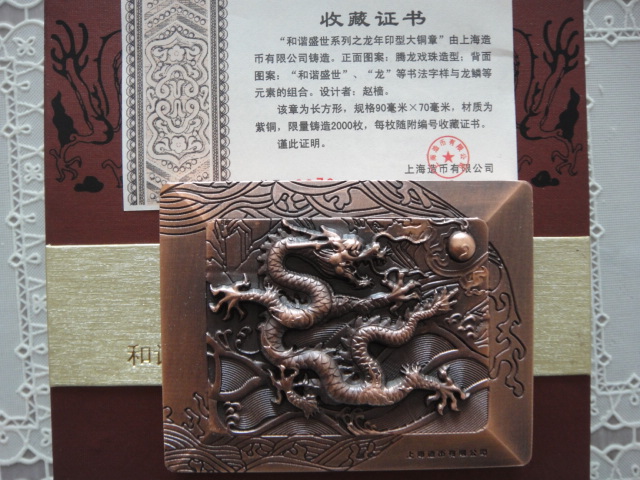 收藏证书
“和谐盛世系列之龙年印型大铜章”由上海造
币有限公司铸造。正面图案：腾龙戏珠造型；背面
图案：“和谐盛世”、“龙”等书法字样与龙鳞等
元素的组合。设计者：赵樯。
该章为长方形，规格90毫米×70毫米，材质为
紫铜，限量铸造2000枚，每枚随附编号收藏证书。
谨此证明。
上海造币有限公司
和谐
上海造币有限公司